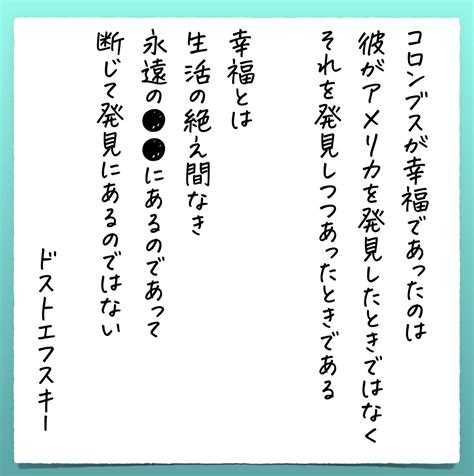 コロンブスが幸福であったのは
彼がアメリカを発見したときではなく
それを発見しつつあったときである
幸福とは
生活の絶え間なき
永遠の●●にあるのであって
断じて発見にあるのではない
ドストエフスキー